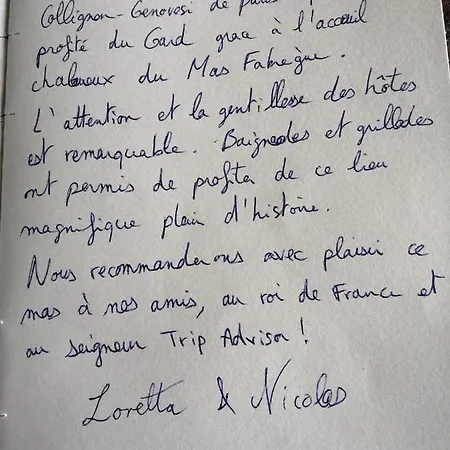 Collignon-Genovosi de
profité du Gard grace à l'accueil
chaleureux du Mas Fabregue.
L'attention et la gentillesse des hôtes
est remarquable. Baignades et grillades
ont permis de profiter de ce lieu
magnifique plein d'histoire.
Nous recommanderons avec plaisir ce
mas à nos amis, au roi de France et
au seigneur Trip Advisor !
Loretta & Nicolas